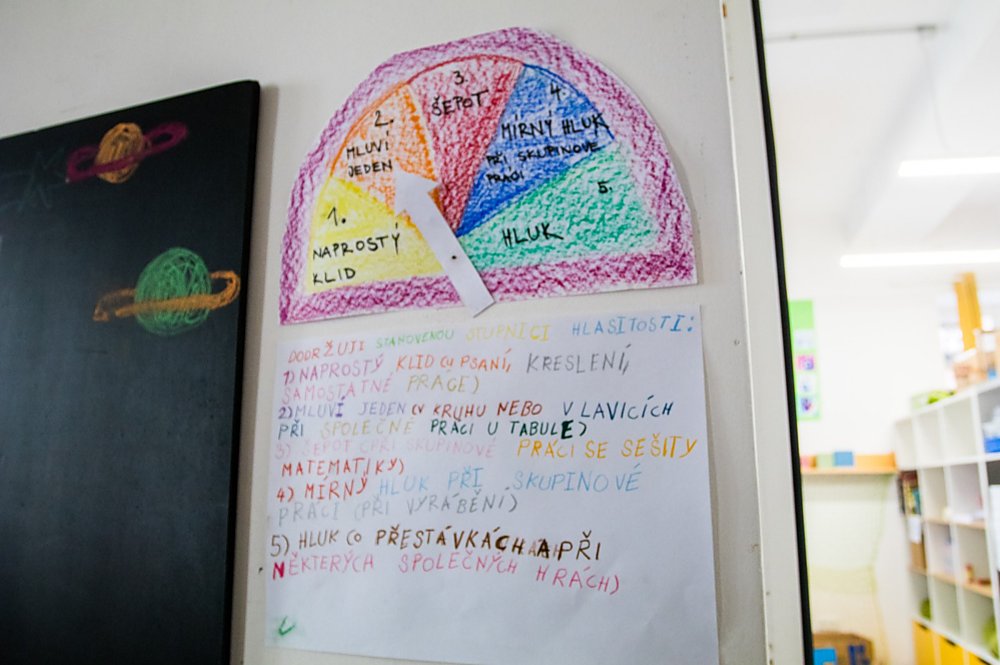 3.
ŠEPOT
2.
MLUVÍ
JEDEN
4.
MÍRNÝ HLUK
PŘI SKUPINOVÉ
PRÁCI
1.
NAPROSTÝ
KLID
5.
HLUK
DODRŽUJI STANOVENOU STUPNICI HLASITOSTI:
1) NAPROSTÝ KLID (U PSANÍ, KRESLENÍ,
SAMOSTATNÉ PRÁCE)
2) MLUVÍ JEDEN (V KRUHU NEBO V LAVICÍCH
PŘI SPOLEČNÉ PRÁCI U TABULE)
3) ŠEPOT (PŘI SKUPINOVÉ PRÁCI SE SEŠITY
MATEMATIKY)
4) MÍRNÝ HLUK PŘI SKUPINOVÉ
PRÁCI (PŘI VYRÁBĚNÍ)
5) HLUK (O PŘESTÁVKÁCH A PŘI
NĚKTERÝCH SPOLEČNÝCH HRÁCH)